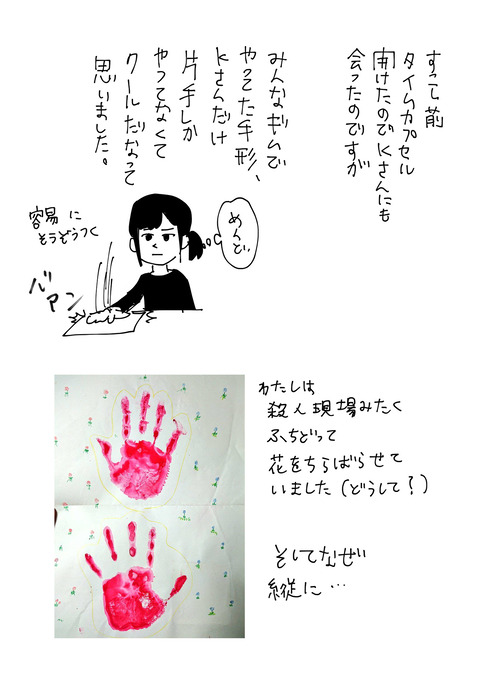 すこし前
タイムカプセル
開けたのでKさんにも
会ったのですが
みんなギムで
やってた手形、
Kさんだけ
片手しか
やってなくて
クールだなって
思いました。
めんど、
容易に
そうぞうつく
バアン
わたしは
殺人現場みたく
ふちどって
花をちらばらせて
いました(どうして?)
そしてなぜ
縦に…